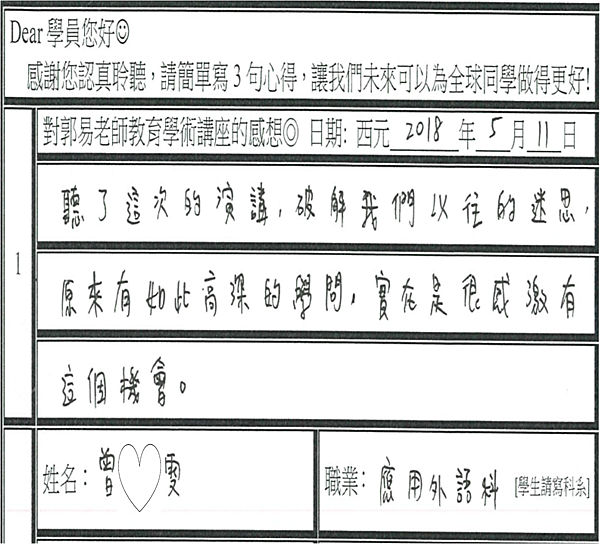 Dear 學員您好☺
感謝您認真聆聽，請簡單寫3句心得，讓我們未來可以為全球同學做得更好!
1
對郭易老師教育學術講座的感想◎ 日期: 西元 2018 年 5 月 11 日
聽了這次的演講，破解我們以往的迷思，
原來有如此高深的學問，實在是很感激有
這個機會。
姓名：曾♡雯
職業：應用外語科 [學生請寫科系]